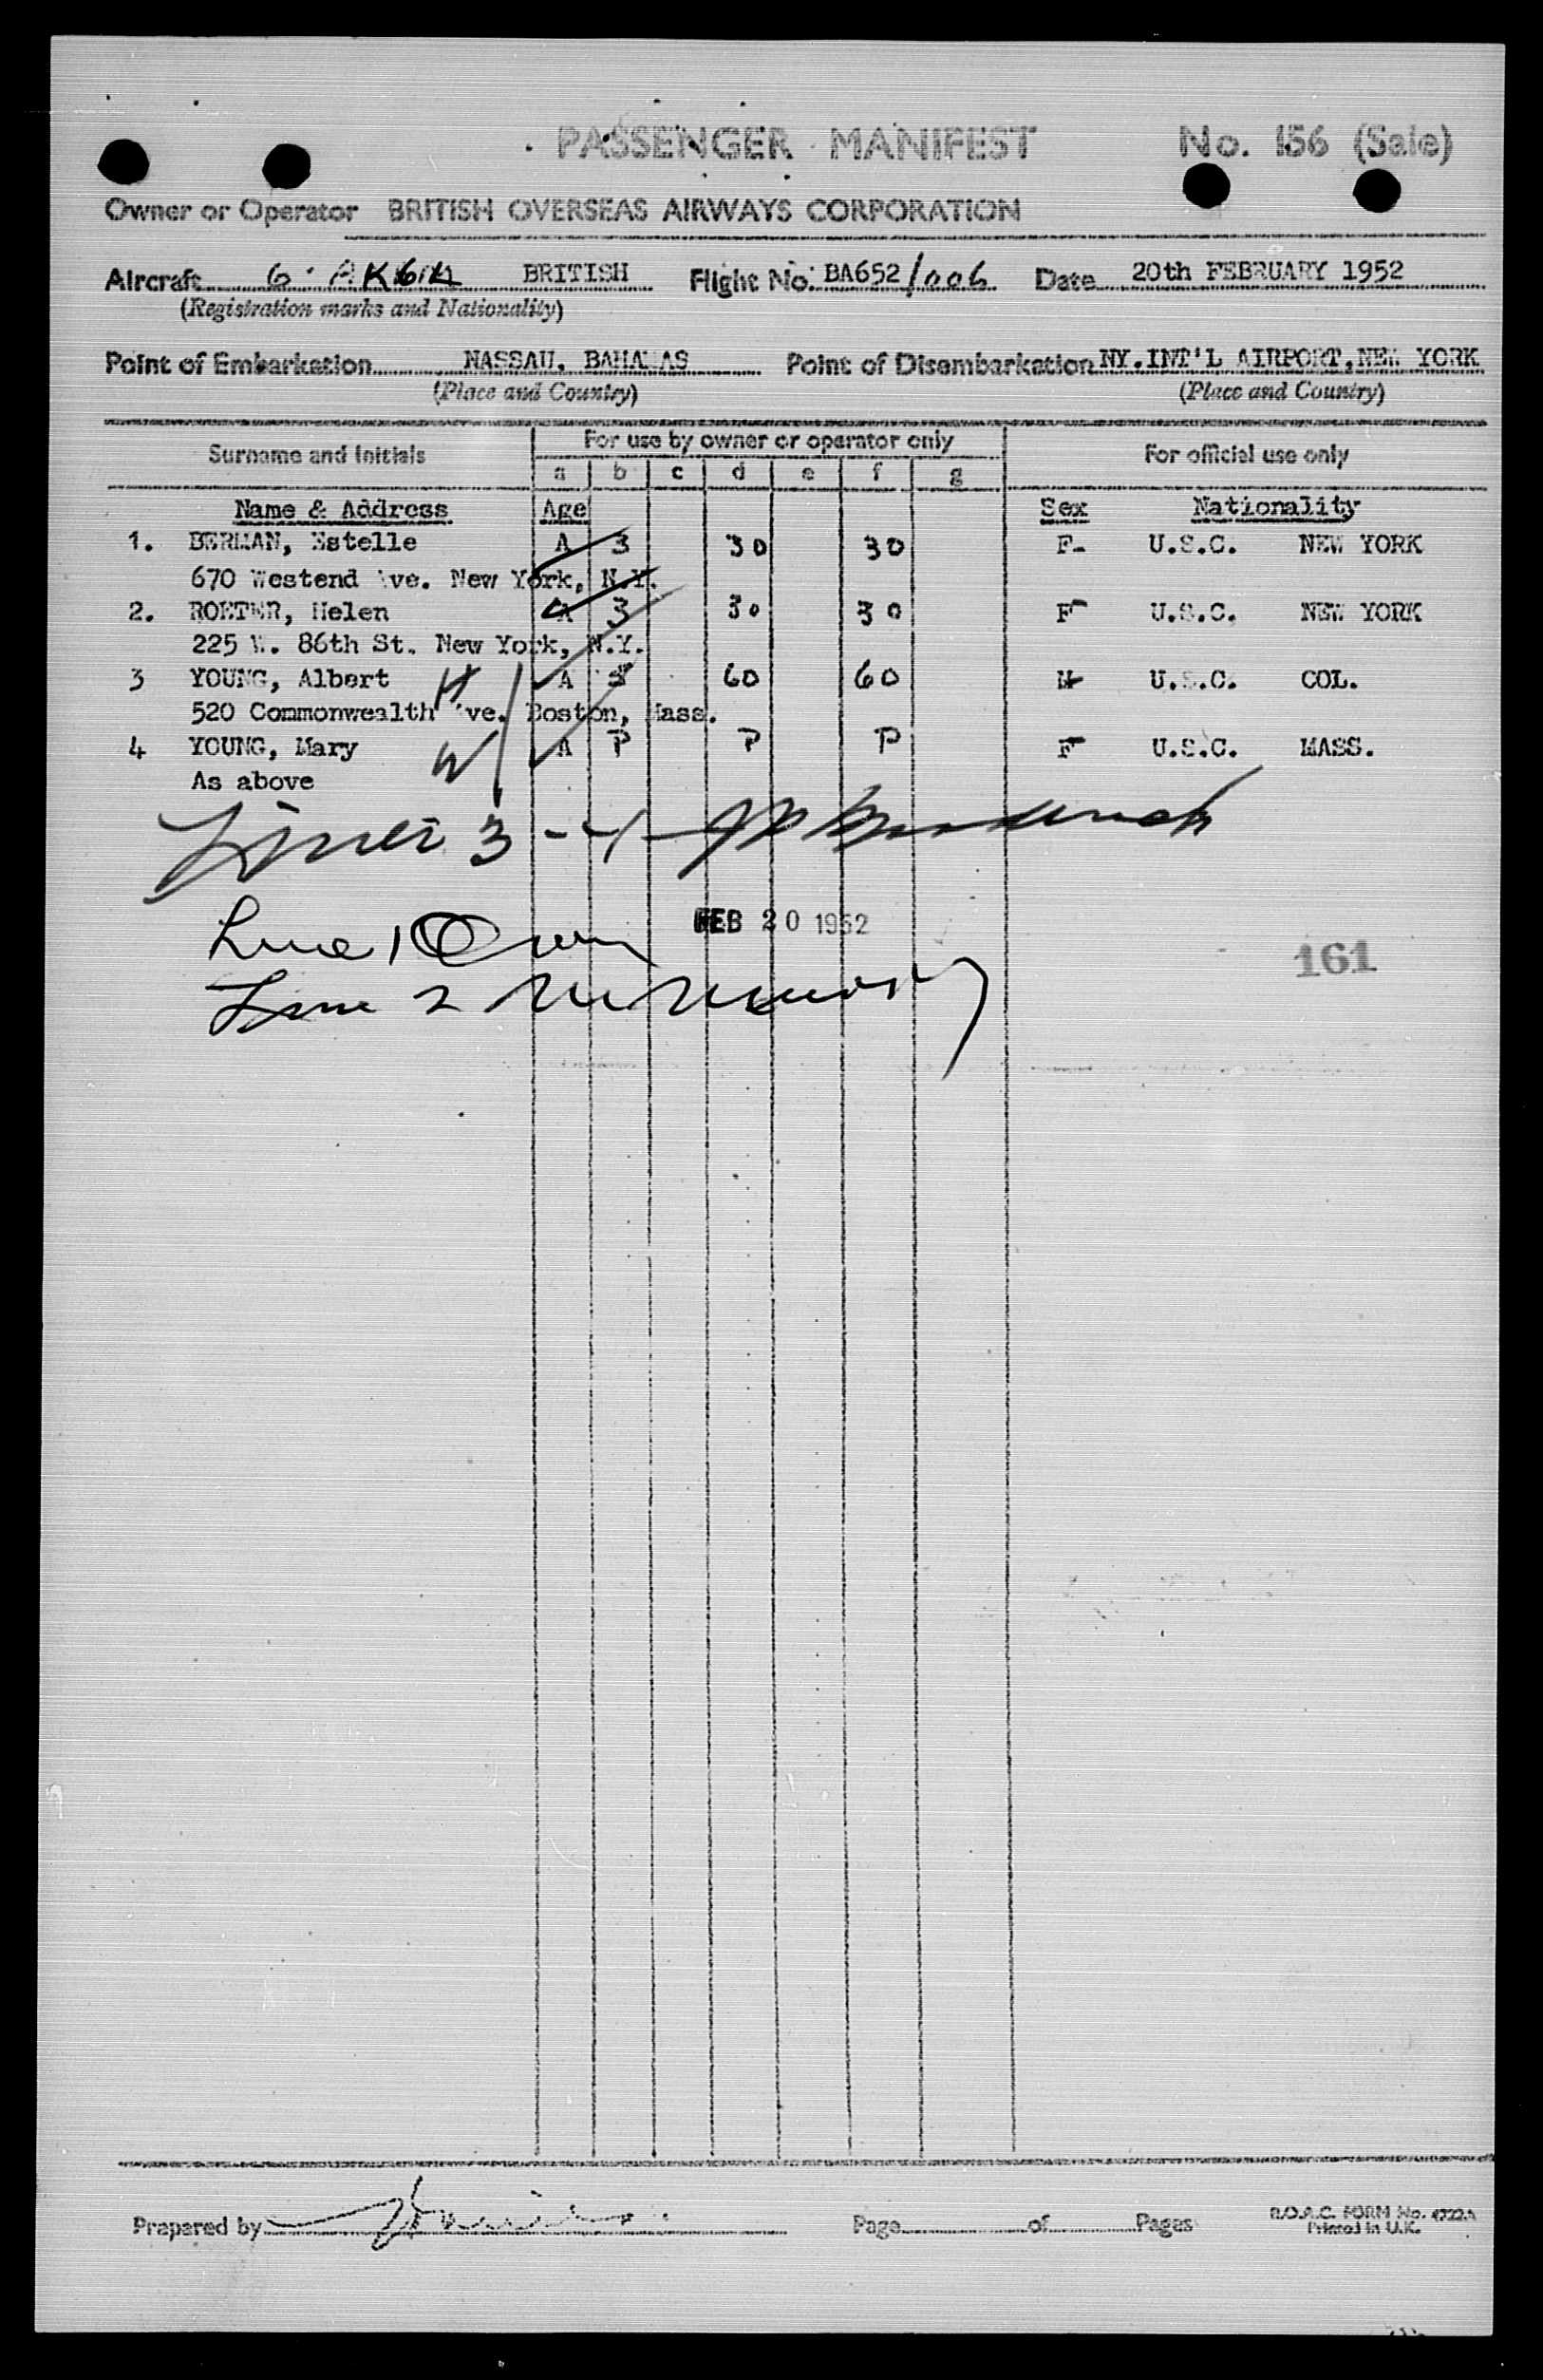 PASSENGER MANIFEST No. 156 (Sale)
Owner or Operator BRITISH OVERSEAS AIRWAYS CORPORATION
Aircraft BRITISH Flight No. BA652/006 Date 20th FEBRUARY 1952
(Registration marks and Nationality)
Point of Embarkation NASSAU, BAHAMAS Point of Disembarkation NY.INT'L AIRPORT, NEW YORK
(Place and Country) (Place and Country)
Surname and Initials For use by owner or operator only For official use only
a b c d e f g
Name & Address Age Sex Nationality
1. BERMAN, Estelle A 3 30 30 F- U.S.C. NEW YORK
670 Westend Ave. New York, N.Y.
2. Helen A 3 30 30 F U.S.C. NEW YORK
225 W. 86th St. New York, N.Y.
3 YOUNG, Albert H A 60 60 M U.S.C. COL.
520 Commonwealth Ave. Boston, Mass.
4 YOUNG, Mary W A P P P F U.S.C. MASS.
As above
Lines 3 - 4
FEB 20 1952
Line 1
161
Line 2
Prepared by Page of Pages B.O.A.C. FORM No.
Printed in U.K.